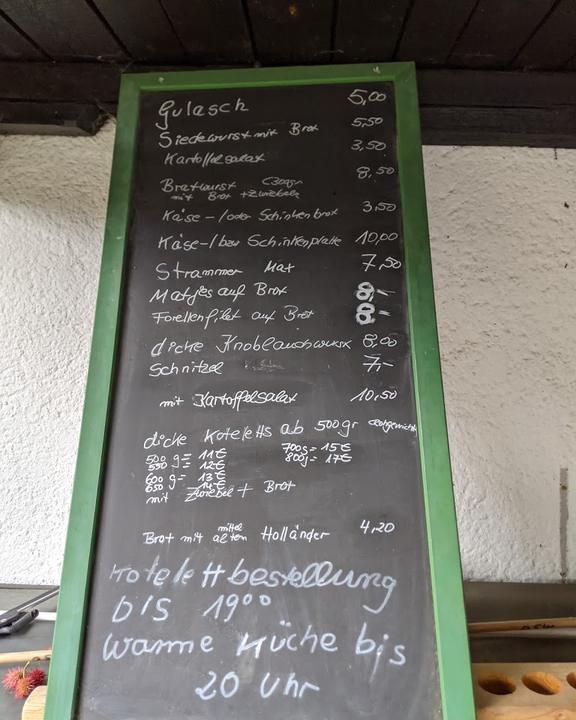 Gulasch 5,00
Siedewurst mit Brot 5,50
Kartoffelsalat 3,50
Bratwurst 8,50
mit Brot + Zwiebeln
Käse-/oder Schinkenbrot 3,50
Käse-/bzw Schinkenplatte 10,00
Strammer Max 7,50
Matjes auf Brot 8,-
Forellenfilet auf Brot 8,-
dicke Knoblauchwurst 6,00
Schnitzel 7,-
mit Kartoffelsalat 10,50
dicke Koteletts ab 500gr
500 g = 11€ 700g = 15€
550 = 12€ 800g = 17€
600 g = 13€
650 = 14€
mit Zwiebel + Brot
Brot mit mittel alten Holländer 4,20
Kotelettbestellung
bis 19⁰⁰
warme Küche bis
20 Uhr